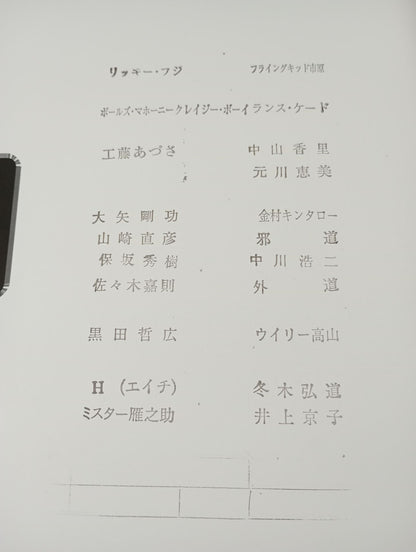 リッキー・フジ フライングキッド市原
ボールズ・マホーニークレイジー・ボーイランス・ケード
工藤あづさ 中山香里
元川恵美
大矢剛功 金村キンタロー
山崎直彦 邪道
保坂秀樹 中川浩二
佐々木嘉則 外道
黒田哲広 ウイリー高山
H (エイチ) 冬木弘道
ミスター雁之助 井上京子